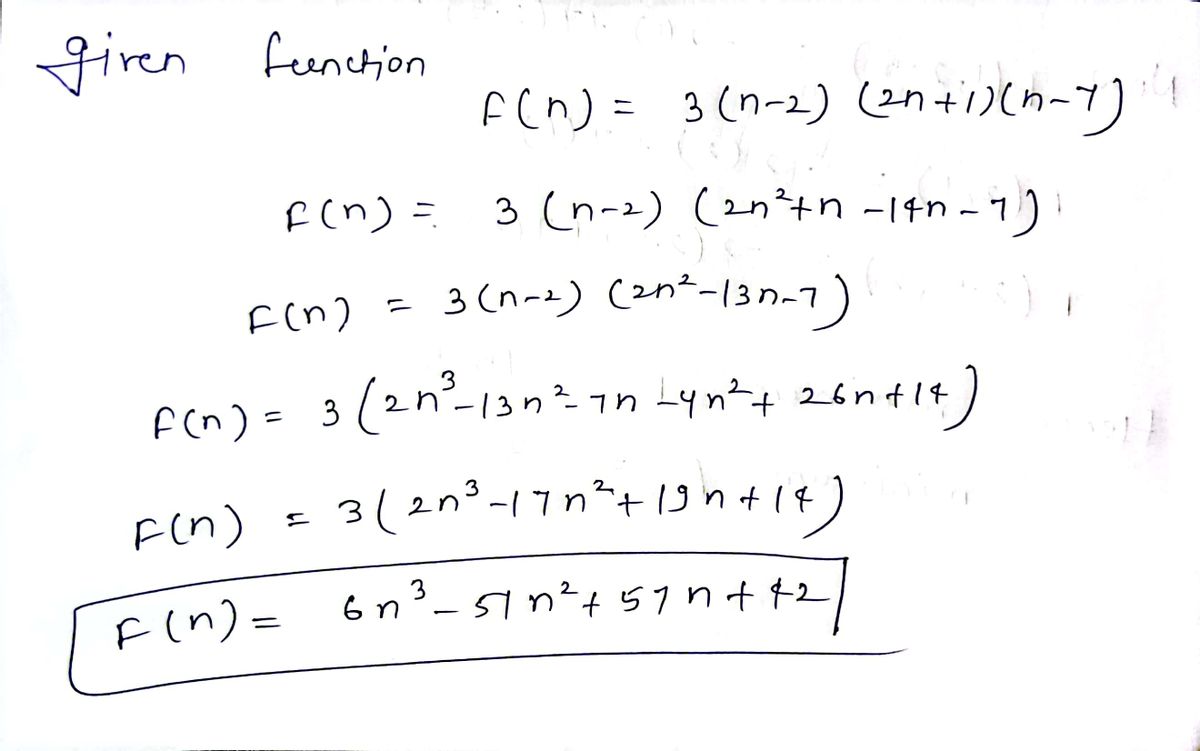 given function
F(n) = 3(n-2) (2n+1)(n-7)
F(n) = 3 (n-2) (2n²+n -14n -7)
F(n) = 3(n-2) (2n²-13n-7)
F(n) = 3 (2n³-13n²-7n -4n²+ 26n+14)
F(n) = 3(2n³-17n²+19n+14)
F(n) = 6n³-51n²+57n+42